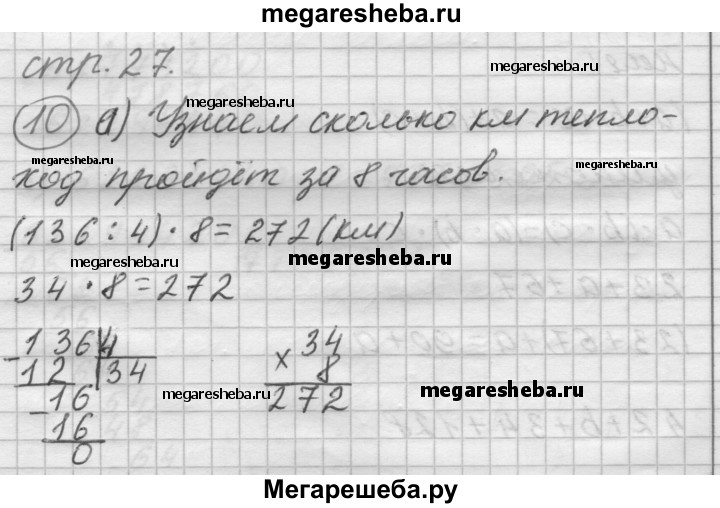 megaresheba.ru
стр. 27.
megaresheba.ru
megaresheba.ru
10 а) Узнаем сколько км тепло-
megaresheba.ru
megaresheba.ru
ход пройдёт за 8 часов.
(136 : 4) · 8 = 272 (км)
megaresheba.ru
megaresheba.ru
34 · 8 = 272
- 136 4
12 34
- 16
16
0
× 34
8
272
megaresheba.ru
megaresheba.ru
Мегарешеба.ру